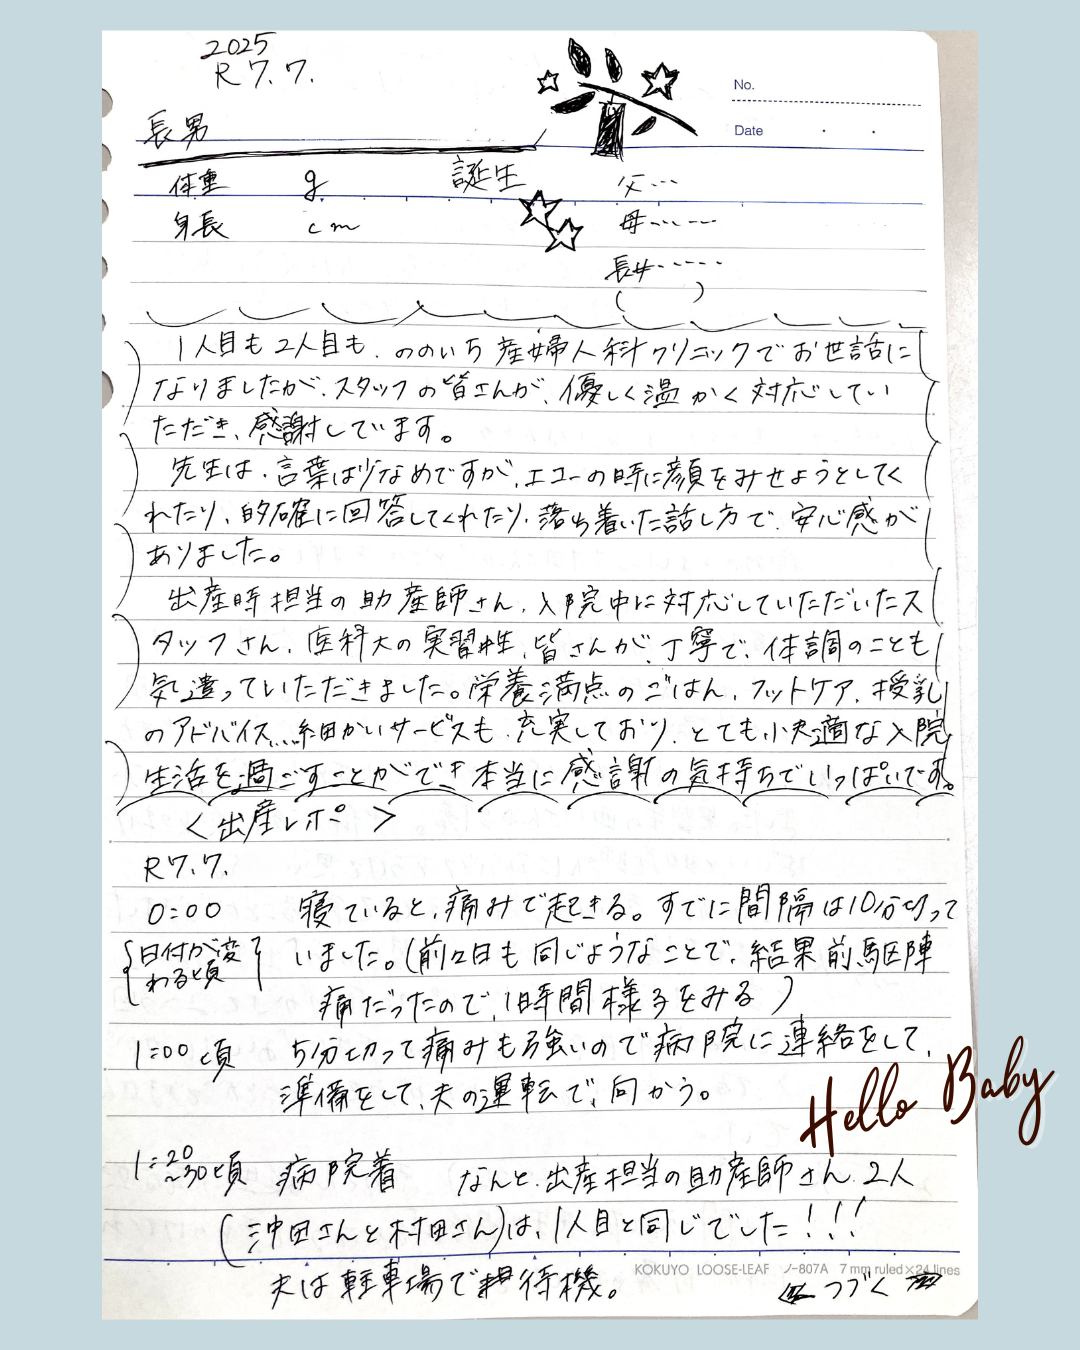 2025
R 7. 7.
No.
Date
長男
体重 g 誕生 父…
身長 cm 母……
長女……
( )
1人目も2人目も、ののいち産婦人科クリニックでお世話に
なりましたが、スタッフの皆さんが、優しく温かく対応してい
ただき、感謝しています。
先生は、言葉は少なめですが、エコーの時に顔をみせようとしてく
れたり、的確に回答してくれたり、落ち着いた話し方で、安心感が
ありました。
出産時担当の助産師さん、入院中に対応していただいたス
タッフさん、医科大の実習生、皆さんが、丁寧で、体調のことも
気遣っていただきました。栄養満点のごはん、フットケア、授乳
のアドバイス…細かいサービスも充実しており、とても快適な入院
生活を過ごすことができ本当に感謝の気持ちでいっぱいです。
<出産レポ>
R7.7.
0:00 寝ていると、痛みで起きる。すでに間隔は10分切って
{日付が変わる頃} いました。(前々日も同じようなことで、結果前駆陣
痛だったので、1時間様子をみる)
1:00頃 5分切って痛みも強いので病院に連絡をして、
準備をして、夫の運転で、向かう。
Hello Baby
1:20~30頃 病院着 なんと、出産担当の助産師さん、2人
(沖田さんと村田さん)は、1人目と同じでした!!!
KOKUYO LOOSE-LEAF ノ-807A 7 mm ruled×24 lines
夫は駐車場で待機。 つづく